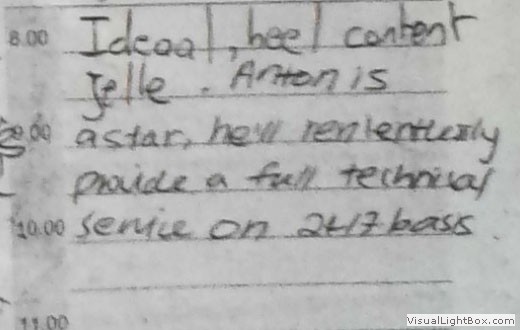 8.00 Ideaal, heel content
Jelle. Anton is
9.00 a star, he'll relentlessly
provide a full technical
10.00 service on 24/7 basis.
11.00
VisualLightBox.com